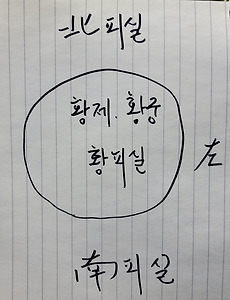 北피실
황제. 황궁
황피실
左
(南)피실